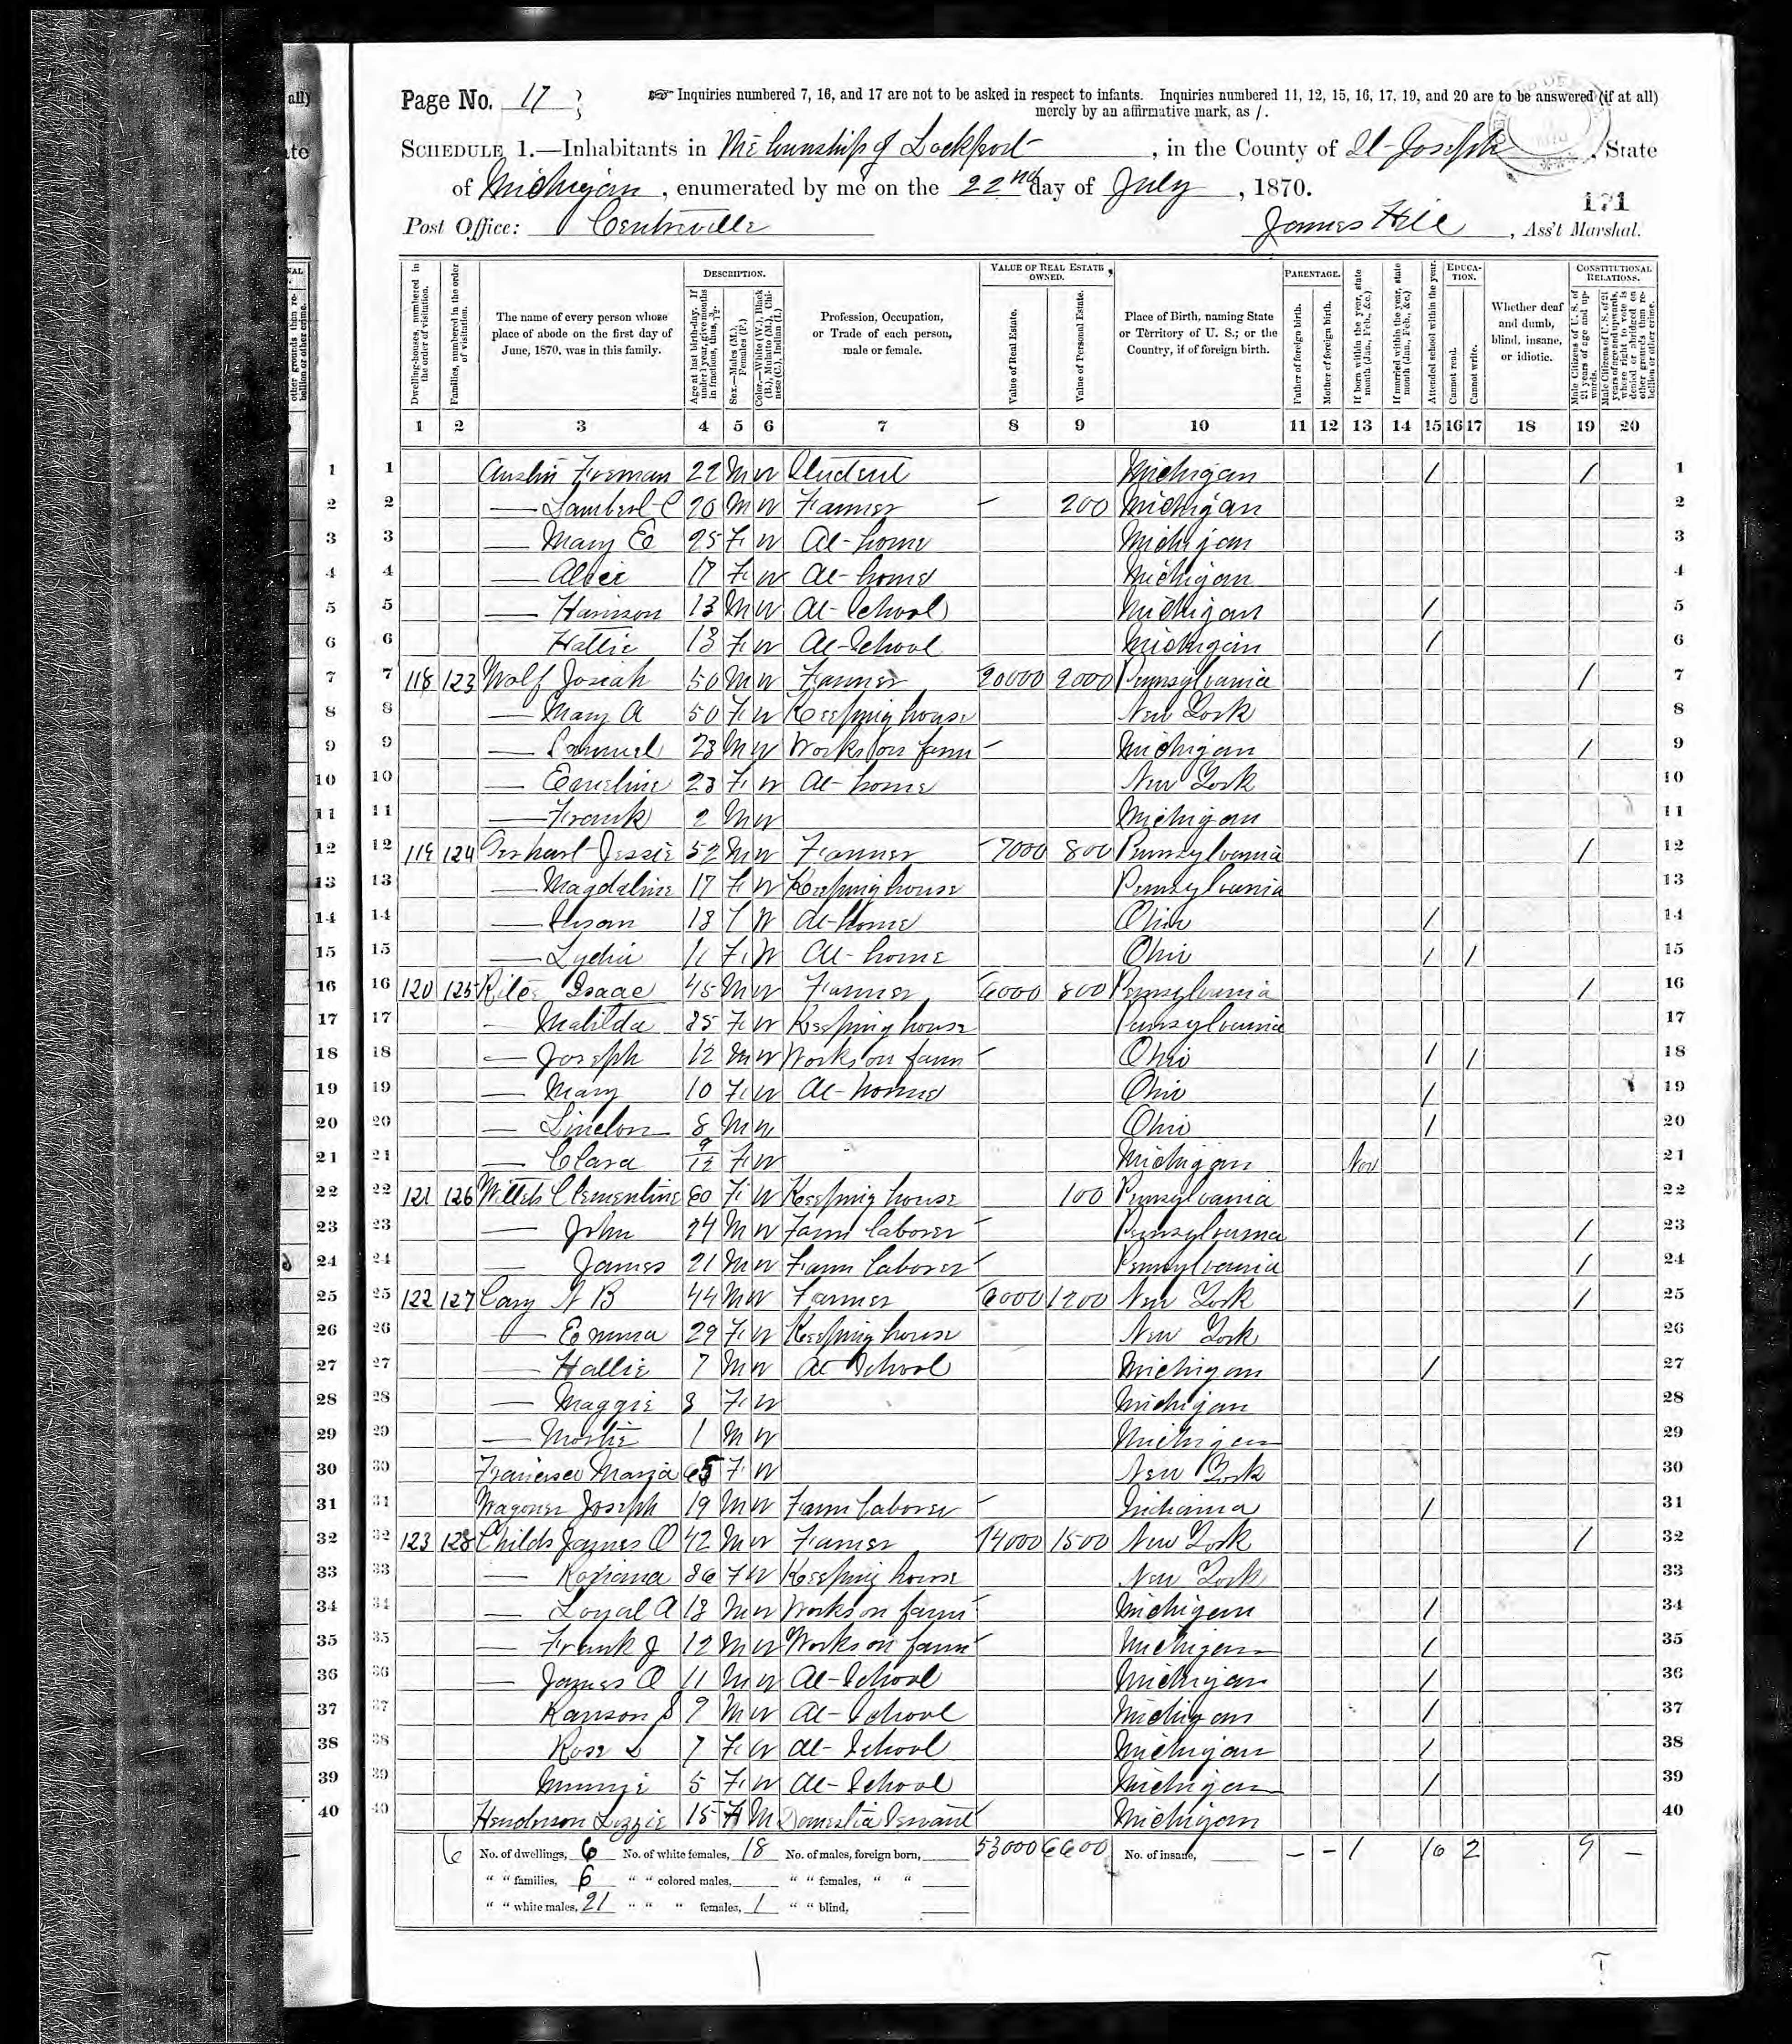 Page No. 17
Inquiries numbered 7, 16, and 17 are not to be asked in respect to infants. Inquiries numbered 11, 12, 15, 16, 17, 19, and 20 are to be answered (if at all)
merely by an affirmative mark, as /.
SCHEDULE 1.—Inhabitants in The Township of Lockport, in the County of St Joseph, State
of Michigan, enumerated by me on the 22nd day of July, 1870.
171
Post Office: Centreville James Hill, Ass't Marshal.
Dwelling-houses, numbered in the order of visitation.
Families, numbered in the order of visitation.
The name of every person whose place of abode on the first day of June, 1870, was in this family.
DESCRIPTION.
Age at last birth-day. If under 1 year, give months in fractions, thus, 3/12.
Sex.—Males (M.), Females (F.)
Color.—White (W.), Black (B.), Mulatto (M.), Chinese (C.), Indian (I.)
Profession, Occupation, or Trade of each person, male or female.
VALUE OF REAL ESTATE OWNED.
Value of Real Estate.
Value of Personal Estate.
Place of Birth, naming State or Territory of U. S.; or the Country, if of foreign birth.
PARENTAGE.
Father of foreign birth.
Mother of foreign birth.
If born within the year, state month (Jan., Feb., &c.)
If married within the year, state month (Jan., Feb., &c.)
Attended school within the year.
EDUCATION.
Cannot read.
Cannot write.
Whether deaf and dumb, blind, insane, or idiotic.
CONSTITUTIONAL RELATIONS.
Male Citizens of U. S. of 21 years of age and upwards.
Male Citizens of U. S. of 21 years of age and upwards, where right to vote is denied or abridged on other grounds than rebellion or other crime.
1 2 3 4 5 6 7 8 9 10 11 12 13 14 15 16 17 18 19 20
1 Austin Freeman 22 M W Student Michigan / / 1
2 — Lambert C 20 M W Farmer 200 Michigan 2
3 — Mary E 25 F W At home Michigan 3
4 — Alice 17 F W At home Michigan 4
5 — Harrison 13 M W At School Michigan / 5
6 Hallie 13 F W At School Michigan / 6
7 118 123 Wolf Josiah 50 M W Farmer 20000 2000 Pennsylvania / 7
8 — Mary A 50 F W Keeping house New York 8
9 — Samuel 23 M W Works on farm Michigan / 9
10 — Emeline 23 F W At home New York 10
11 — Frank 2 M W Michigan 11
12 119 124 Jessie 52 M W Farmer 7000 800 Pennsylvania / 12
13 — Magdaline 17 F W Keeping house Pennsylvania 13
14 — Susan 13 F W At home Ohio / 14
15 — Lydia 11 F W At home Ohio / / 15
16 120 125 Isaac 45 M W Farmer 6000 800 Pennsylvania / 16
17 — Matilda 35 F W Keeping house Pennsylvania 17
18 — Joseph 12 M W Works on farm Ohio / / 18
19 — Mary 10 F W At home Ohio / 19
20 — 8 M W Ohio / 20
21 — Clara 9/12 F W Michigan Nov 21
22 121 126 Willets Clementine 60 F W Keeping house 100 Pennsylvania 22
23 — John 24 M W Farm laborer Pennsylvania / 23
24 — James 21 M W Farm laborer Pennsylvania / 24
25 122 127 Cary N B 44 M W Farmer 6000 1200 New York / 25
26 — Emma 29 F W Keeping house New York 26
27 — Hallie 7 M W At School Michigan / 27
28 — Maggie 3 F W Michigan 28
29 — 1 M W Michigan 29
30 Francisco Maria 65 F W New York 30
31 Wagoner Joseph 19 M W Farm laborer Indiana / 31
32 123 128 Childs James O 42 M W Farmer 14000 1500 New York / 32
33 — Roxiana 36 F W Keeping house New York 33
34 — Loyal A 13 M W Works on farm Michigan / 34
35 — Frank J 12 M W Works on farm Michigan / 35
36 — James O 11 M W At School Michigan / 36
37 Ranson S 9 M W At School Michigan / 37
38 Rose L 7 F W At School Michigan / 38
39 Minnie 5 F W At School Michigan / 39
40 Henderson Lizzie 15 F M Domestic Servant Michigan 40
6 No. of dwellings, 6 No. of white females, 18 No. of males, foreign born, 53000 6600 No. of insane, – – 1 16 2 9 –
" " families, 6 " " colored males, " " females, " "
" " white males, 21 " " " females, 1 " " blind,